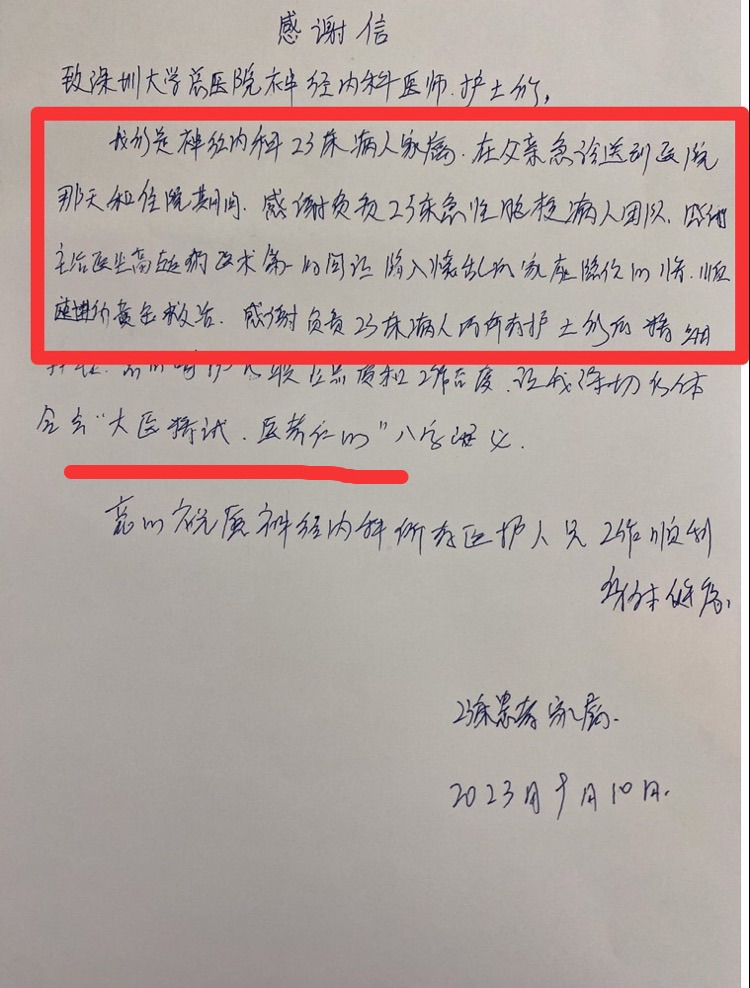 感谢信
致深圳大学总医院神经内科医师.护士们,
我们是神经内科23床病人家属.在父亲急诊送到医院
那天和住院期间.感谢负责23床急性脑梗病人团队.感谢
主治医生高超的医术第一时间让陷入慌乱的家属
黄金救治.感谢负责23床病人的所有护士们的精细
让我深切的体
会古"大医精诚.医者仁心"八字涵义.
衷心祝愿神经内科所有医护人员工作顺利
身体健康.
23床患者家属.
2023月9月10日.